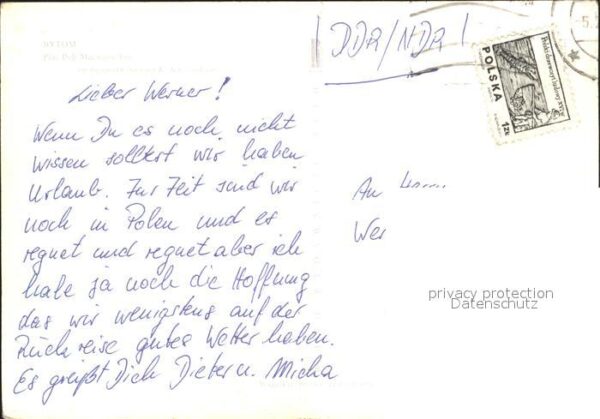 BYTOM
DDR/NDR!
POLSKA
1zł
Lieber Werner!
Wenn Du es noch nicht
wissen solltest wir haben
Urlaub. Zur Zeit sind wir
noch in Polen und es
regnet und regnet aber ich
habe ja noch die Hoffnung
das wir wenigstens auf der
Rückreise gutes Wetter haben.
Es grüßt Dich Dieter u. Micha
An
Wer
privacy protection
Datenschutz